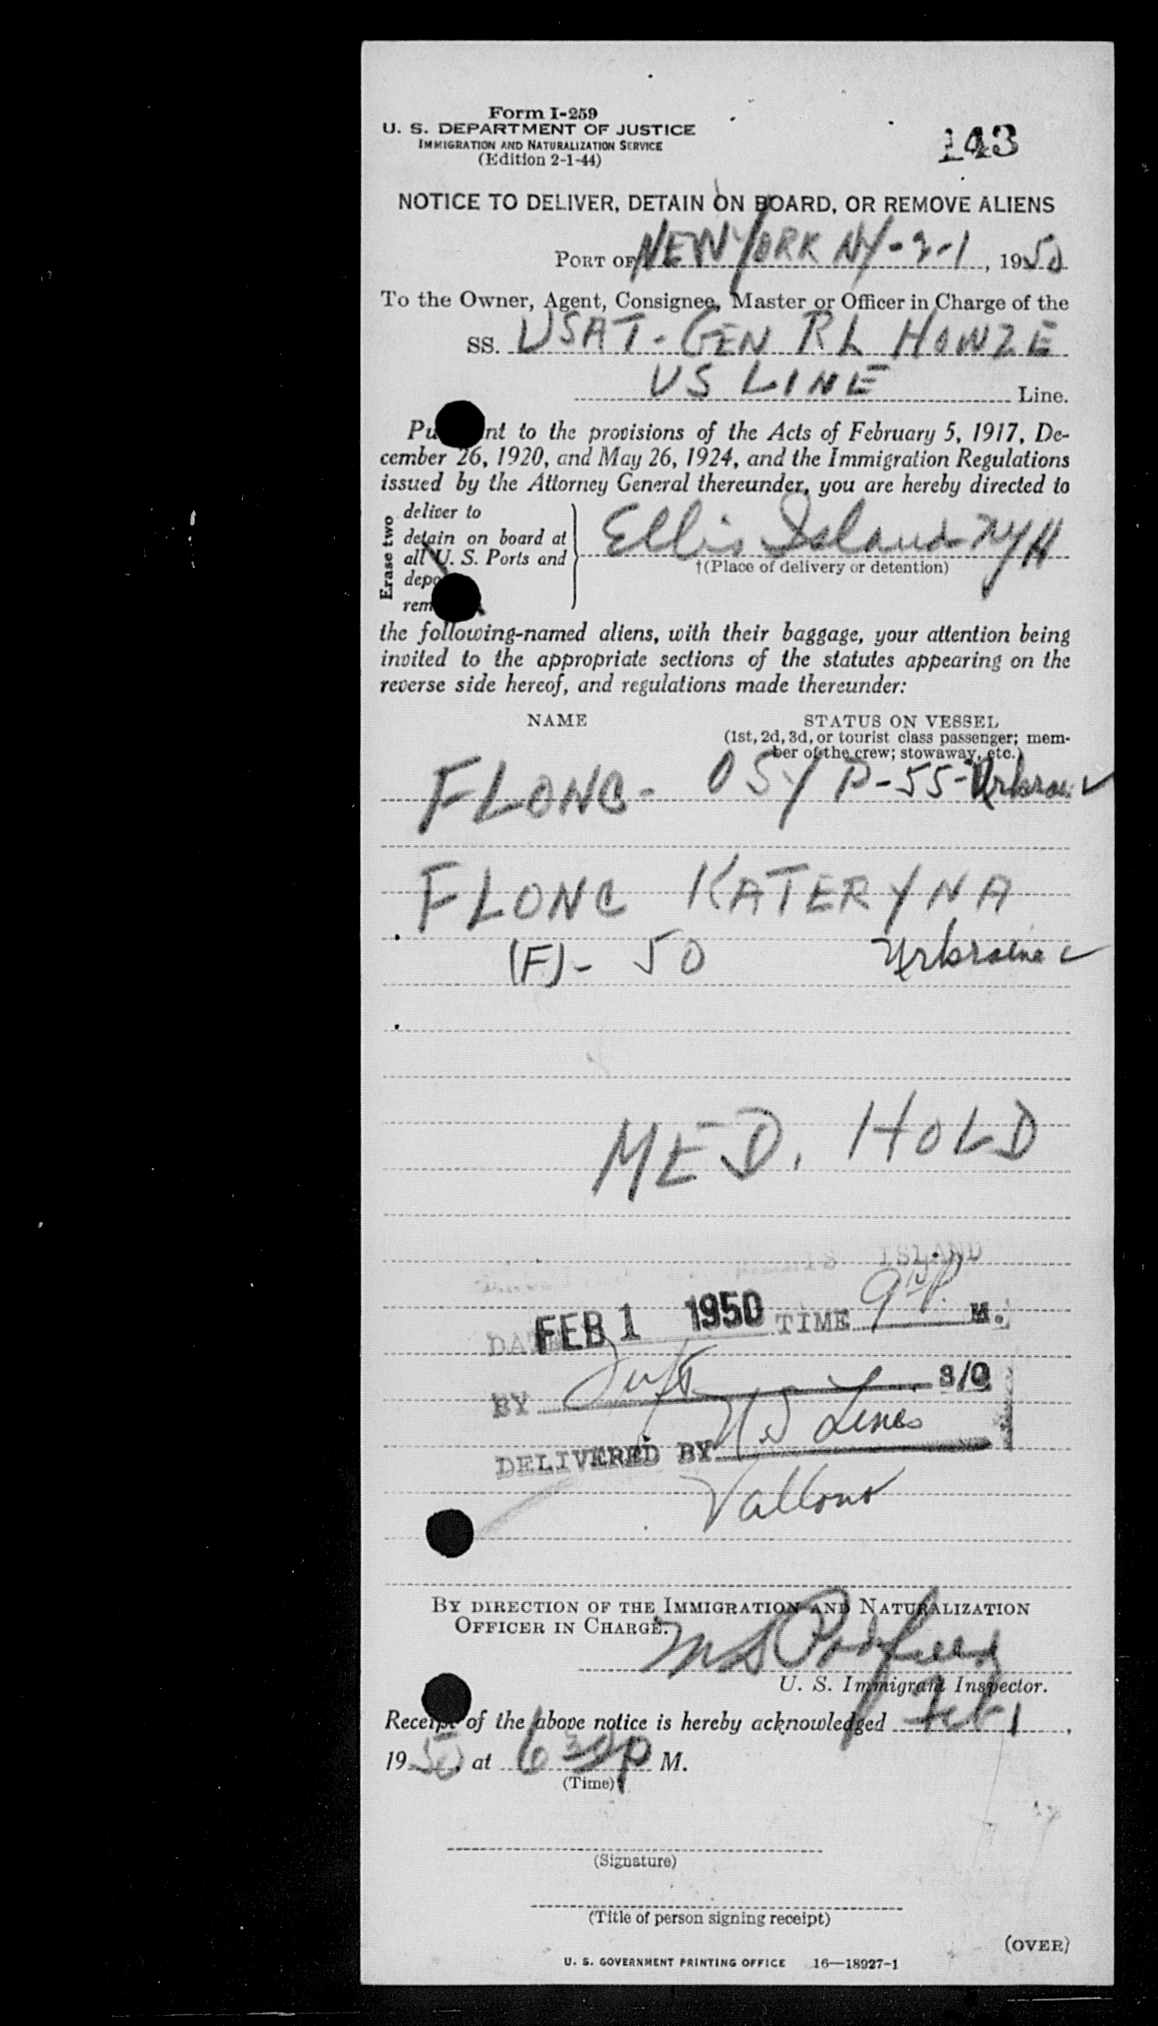 Form I-259
U. S. DEPARTMENT OF JUSTICE
IMMIGRATION AND NATURALIZATION SERVICE
(Edition 2-1-44)
143
NOTICE TO DELIVER, DETAIN ON BOARD, OR REMOVE ALIENS
PORT OF NEW YORK NY-2-1, 1950
To the Owner, Agent, Consignee, Master or Officer in Charge of the
SS. USAT-GEN RL HOWZE
US LINE Line.
Pu nt to the provisions of the Acts of February 5, 1917, De-
cember 26, 1920, and May 26, 1924, and the Immigration Regulations
issued by the Attorney General thereunder, you are hereby directed to
Erase two
deliver to
detain on board at
all U. S. Ports and
depo
rem
Ellis Island NYH
†(Place of delivery or detention)
the following-named aliens, with their baggage, your attention being
invited to the appropriate sections of the statutes appearing on the
reverse side hereof, and regulations made thereunder:
NAME STATUS ON VESSEL
(1st, 2d, 3d, or tourist class passenger; mem-
ber of the crew; stowaway, etc.)
FLONC- OSYP-55-
FLONC KATERYNA
(F)- 50
MED. HOLD
ISLAND
DATE FEB 1 1950 TIME M.
BY S/O
DELIVERED BY US Lines
BY DIRECTION OF THE IMMIGRATION AND NATURALIZATION
OFFICER IN CHARGE.
U. S. Immigrant Inspector.
Receipt of the above notice is hereby acknowledged Feb 1,
1950, at 6 30 p M.
(Time)
(Signature)
(Title of person signing receipt)
(OVER)
U. S. GOVERNMENT PRINTING OFFICE 16—18927-1